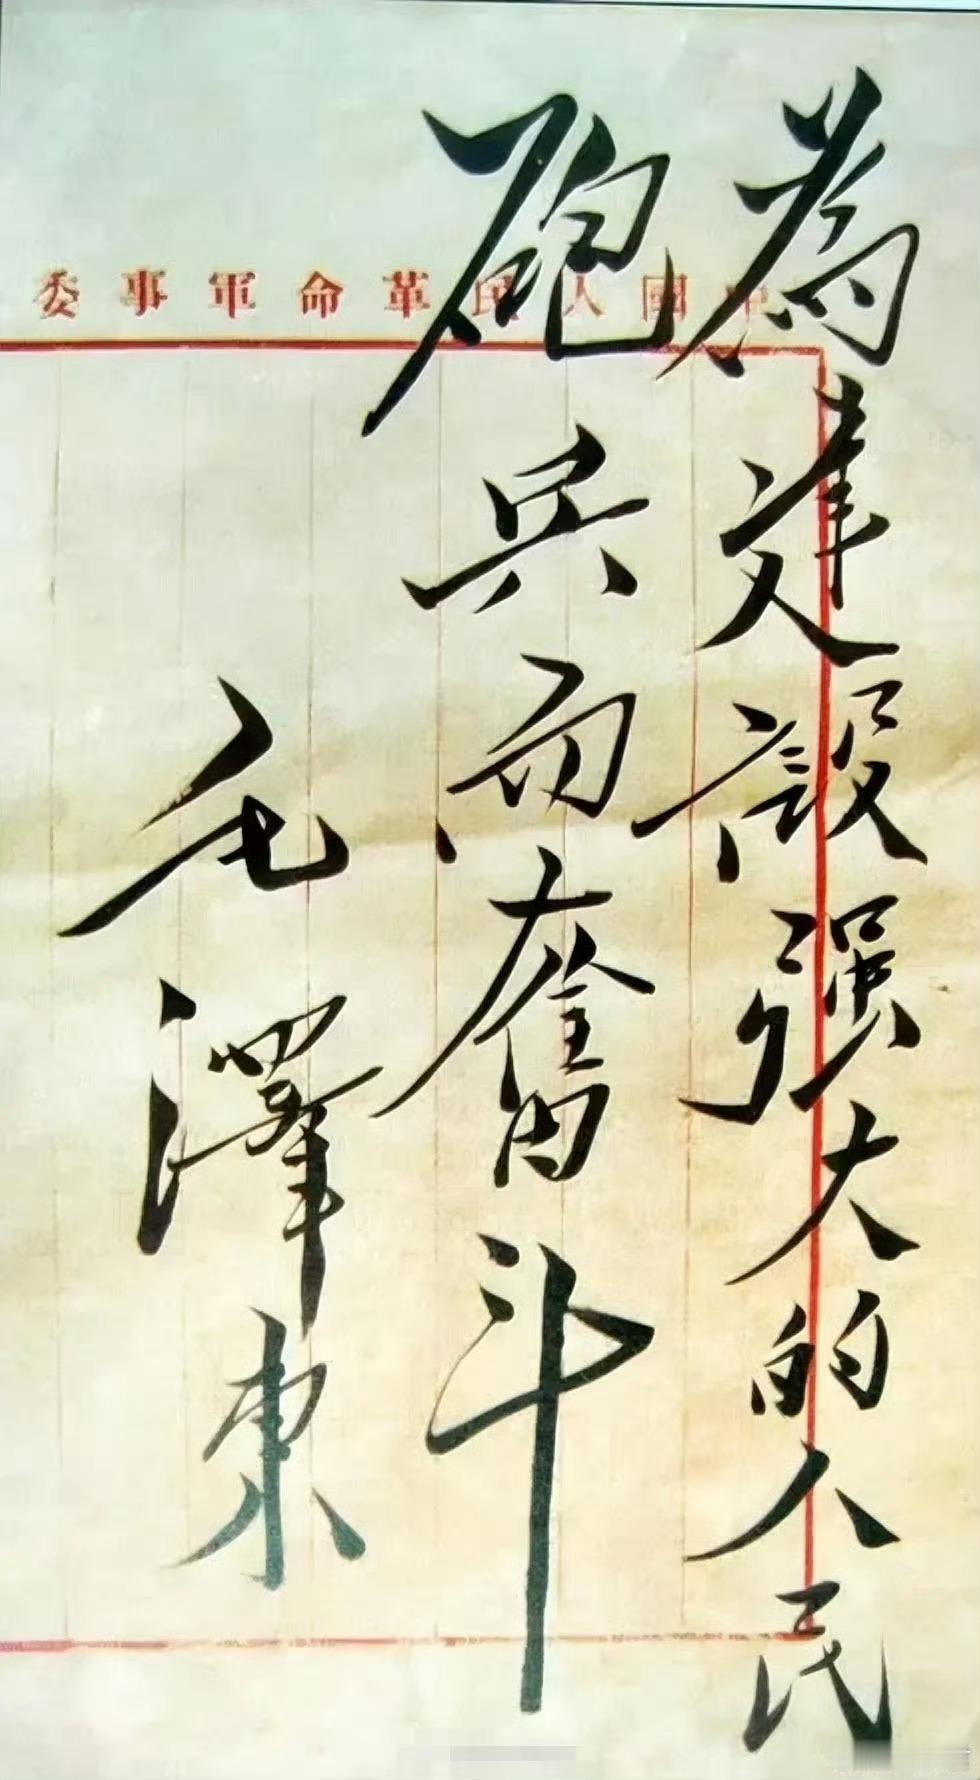 中國人民革命軍事委
為建設强大的人民
砲兵而奮斗
毛澤東